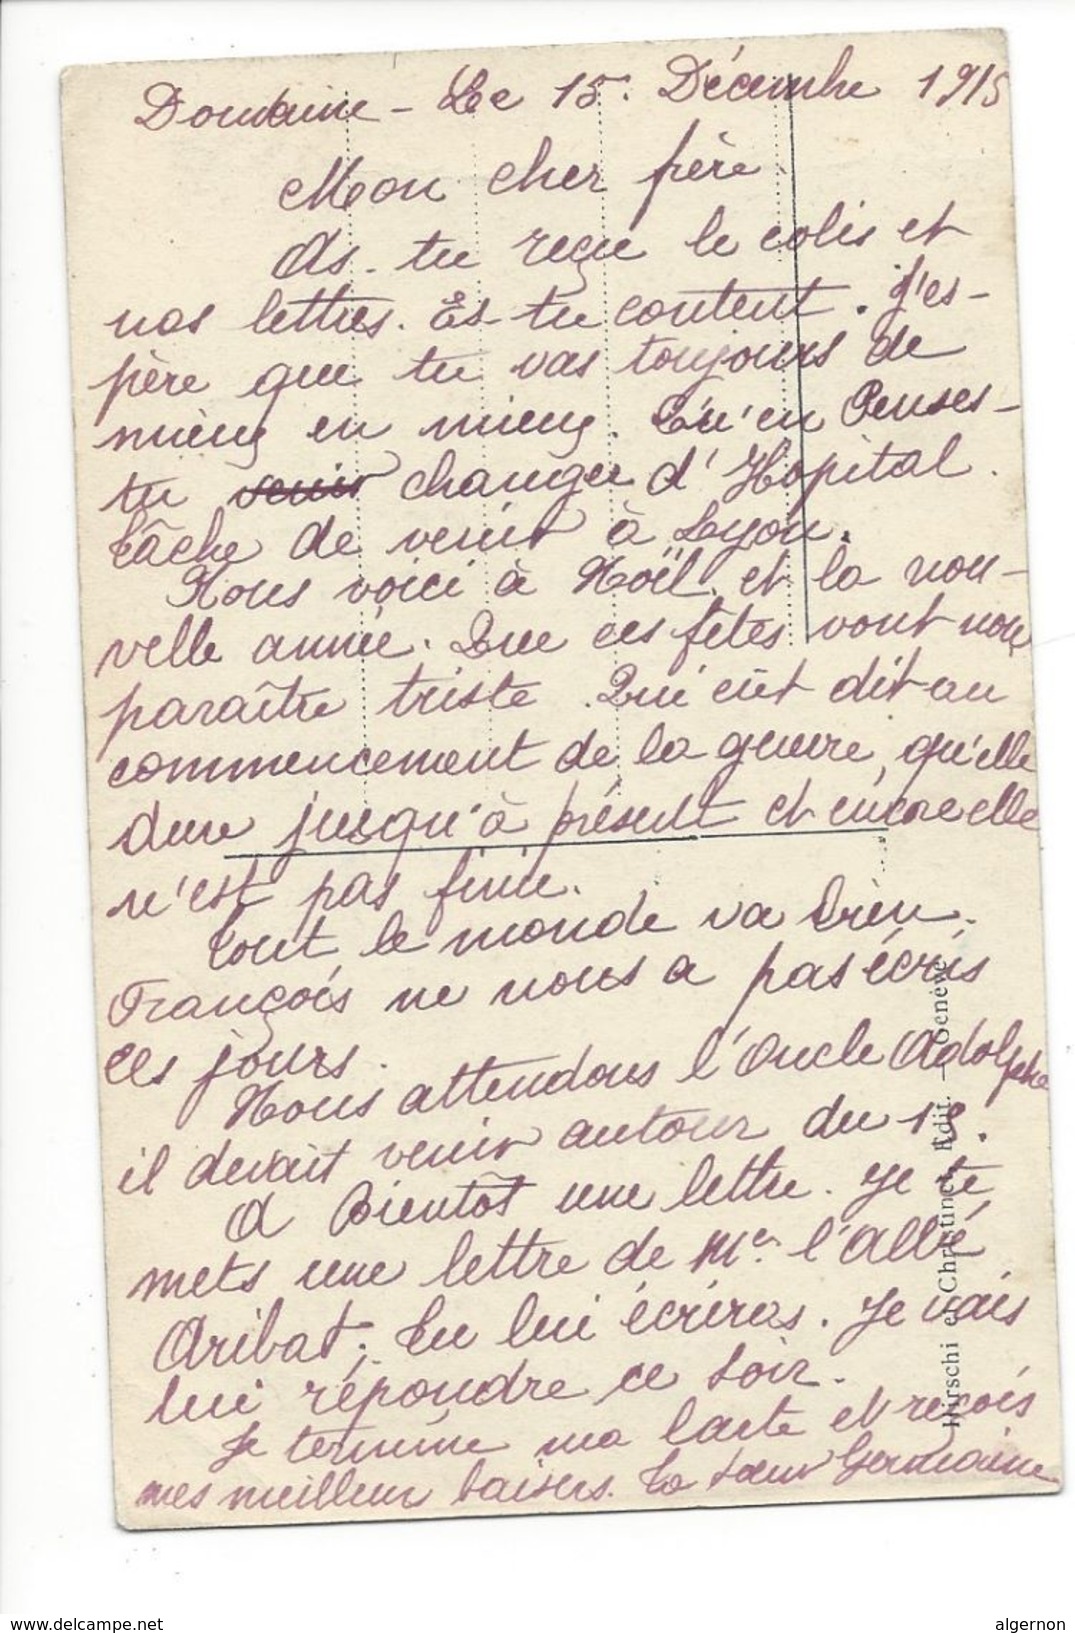 Doudaine - Le 15. Décembre 1915
Mon cher frère.
As-tu reçu le colis et
nos lettres. Es-tu content. J'es-
père que tu vas toujours de
mieux en mieux. Qu'en Penses-
tu venir changer d'Hopital.
Tâche de venir à Lyon.
Nous voici à Noël et la nou-
velle année. Que ces fêtes vont nous
paraître triste. Qui eût dit au
commencement de la guerre, qu'elle
dure jusqu'à présent et encore elle
n'est pas finie.
Tout le monde va bien.
François ne nous a pas écris
ces jours.
Nous attendons l'Oncle Adolphe
il devait venir autour du 18.
A Bientôt une lettre. Je te
mets une lettre de Mr. l'Abbé
Aribat; tu lui écriras. Je vais
lui répondre ce soir.
Je termine ma carte et reçois
mes meilleur baisers. Ta sœur Germaine
Hirschi et Christinet, Edit. - Genève
www.delcampe.net
algernon